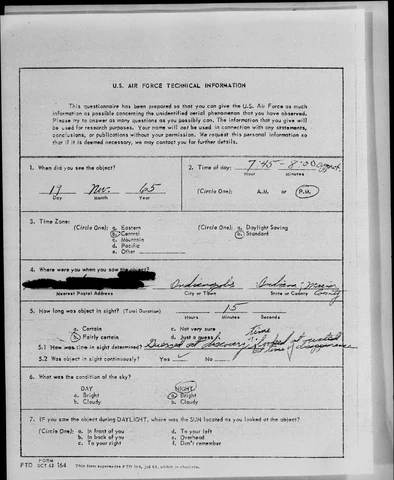 U.S. AIR FORCE TECHNICAL INFORMATION
This questionnaire has been prepared so that you can give the U.S. Air Force as much
information as possible concerning the unidentified aerial phenomenon that you have observed.
Please try to answer as many questions as you possibly can. The information that you give will
be used for research purposes. Your name will not be used in connection with any statements,
conclusions, or publications without your permission. We request this personal information so
that if it is deemed necessary, we may contact you for further details.
1. When did you see the object?
19 Nov. 65
Day Month Year
2. Time of day: 7:45 - 8:00
Hour Minutes
(Circle One): A.M. or P.M.
3. Time Zone:
(Circle One): a. Eastern
b. Central
c. Mountain
d. Pacific
e. Other
(Circle One): a. Daylight Saving
b. Standard
4. Where were you when you saw the object?
Indianapolis Indiana, Marion County
Nearest Postal Address City or Town State or County
5. How long was object in sight? (Total Duration) 15
Hours Minutes Seconds
a. Certain c. Not very sure
b. Fairly certain d. Just a guess
5.1 How was time in sight determined? time
of disappearance
5.2 Was object in sight continuously? Yes No
6. What was the condition of the sky?
DAY NIGHT
a. Bright a. Bright
b. Cloudy b. Cloudy
7. IF you saw the object during DAYLIGHT, where was the SUN located as you looked at the object?
(Circle One): a. In front of you d. To your left
b. In back of you e. Overhead
c. To your right f. Don't remember
FORM
FTD OCT 62 164 This form supersedes FTD 164, Jul 61, which is obsolete.